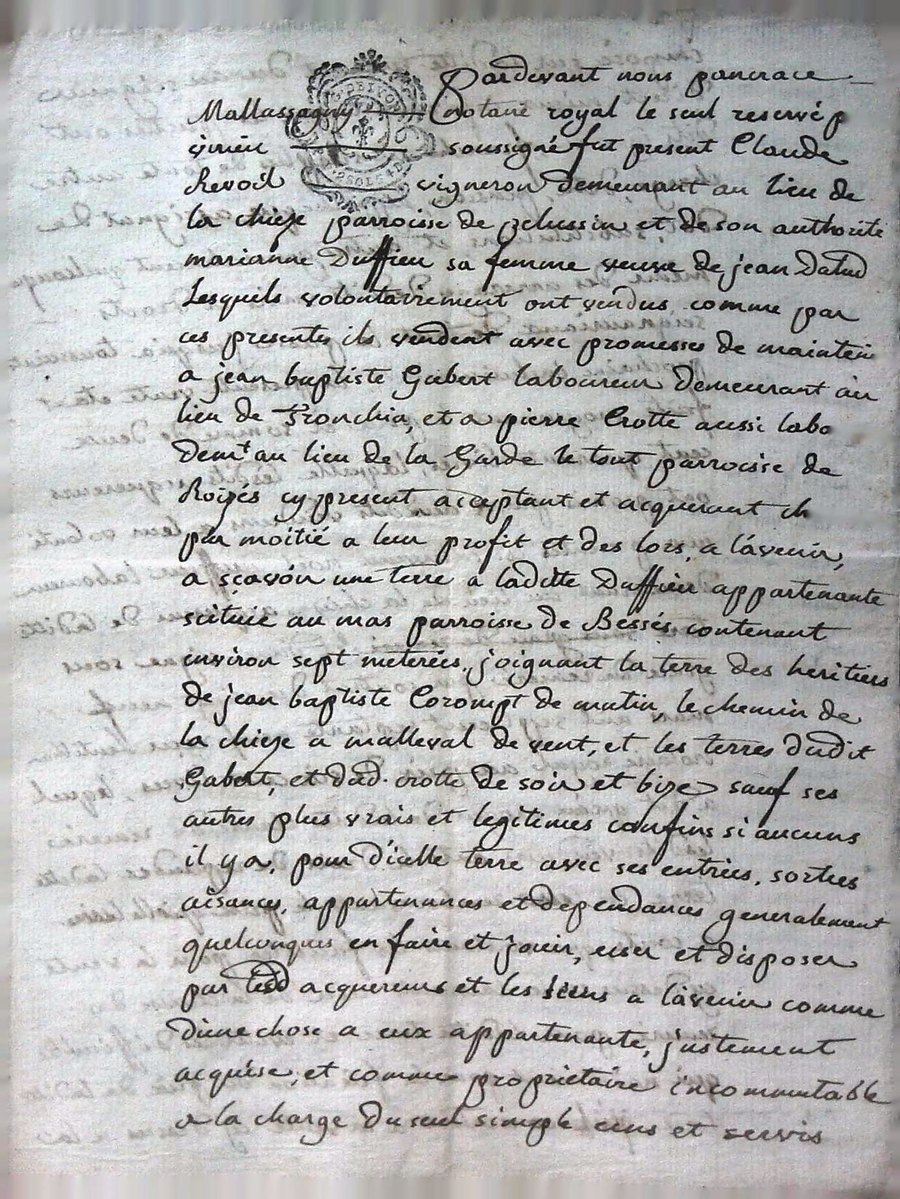 Pardevant nous pancrace
Mallassagny notaire royal le seul reservé p
soussigné fut present Claude
Revoil vigneron demeurant au lieu de
la chieze parroisse de pelussin et de son authorité
marianne Duffieu sa femme veuve de jean
Lesquels volontairement ont vendus comme par
ces presentes ils vendent avec promesses de mainteni
a jean baptiste Gabert laboureur demeurant au
lieu de et a pierre Crotte aussi labo
demt au lieu de la Garde le tout parroisse de
Roizés cy present acceptant et acquerant ch
par moitié a leur profit et des lors a l'avenir,
a sçavoir une terre a laditte Duffieu appartenante
scituée au mas parroisse de Bessés contenant
environ sept meterées, joignant la terre des heritiers
de jean baptiste Corompt de matin, le chemin de
la chieze a malleval de vent, et les terres dudit
Gabert, et dud. crotte de soir et bize sauf ses
autres plus vrais et legitimes confins si aucuns
il y a, pour d'icelle terre avec ses entrées, sorties
aisances, appartenances et dependances generalement
quelconques en faire et jouir, user et disposer
par lesd acquereurs et les siens a l'avenir comme
d'une chose a eux appartenante, justement
acquise, et comme proprietaire incommutable
a la charge du seul simple cens et servis